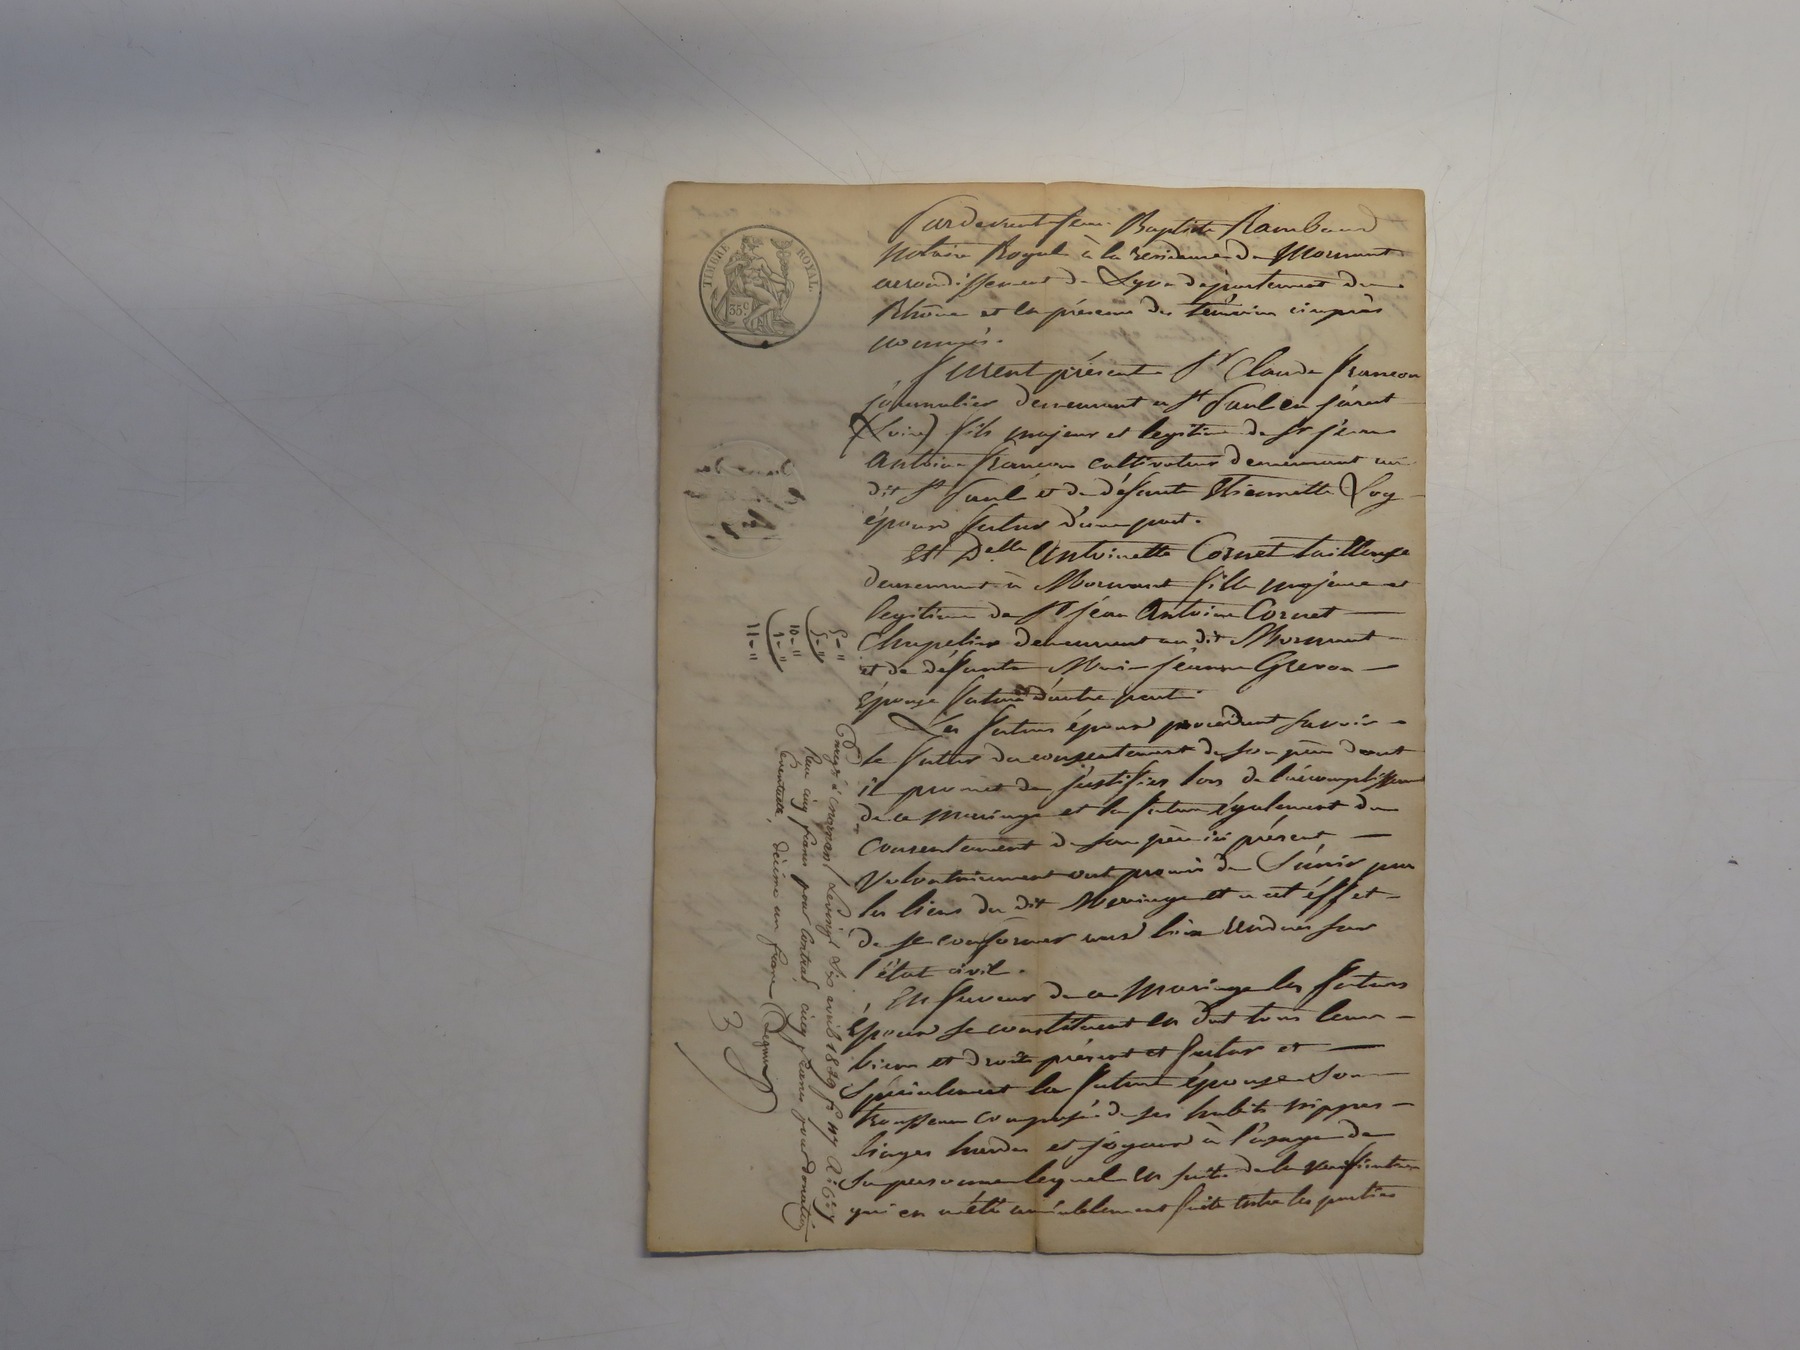 TIMBRE ROYAL.
35 c.
Pardevant Jean Baptiste Rambaud
notaire Royal à la résidence de Mornant
arrondissement de Lyon département du
Rhône et en présence des témoins cinprès
nommés.
Furent présents Sr Claude Francon
journalier demeurant a St Paul en jarret
(Loire) fils majeur et legitime de Sr jean
Antoine francon cultivateur demeurant au
dit St Paul et de défunte Etiennette Loy
époux futur d'une part.
Et Delle Antoinette Cornet tailleuse
demeurant à Mornant fille majeure et
legitime de Sr jéan Antoine Cornet
Chapelier demeurant au dit Mornant
et de défunte Marie jéanne Grevon
épouse future d'autre part.
Les futurs époux procedant savoir
le futur du consentement de son père dont
il promet de justifier lors de l'accomplissement
de ce mariage et la future également du
consentement de son père ici présent
volontairement ont promis de s'unir par
les liens du dit Mariage et a cet éffet
de se conformer aux lois rendues sur
l'état civil.
En faveur de ce mariage les futurs
époux se constituent en dot tous leurs
biens et droits présent et futur et
spécialement la future épouse son
trousseau composé de ses habits nippes
linges hardes et joyaux à l'usage de
sa personne lequel en suite de la verification
qui en a été amiablement faite entre les parties
5-"
5-"
10-"
1-"
11-"
Enregé à mornant le vingt six avril 1829 fo 117
Reçu cinq francs pour contrat, cinq francs pour donation
Eventuelle, décime un franc